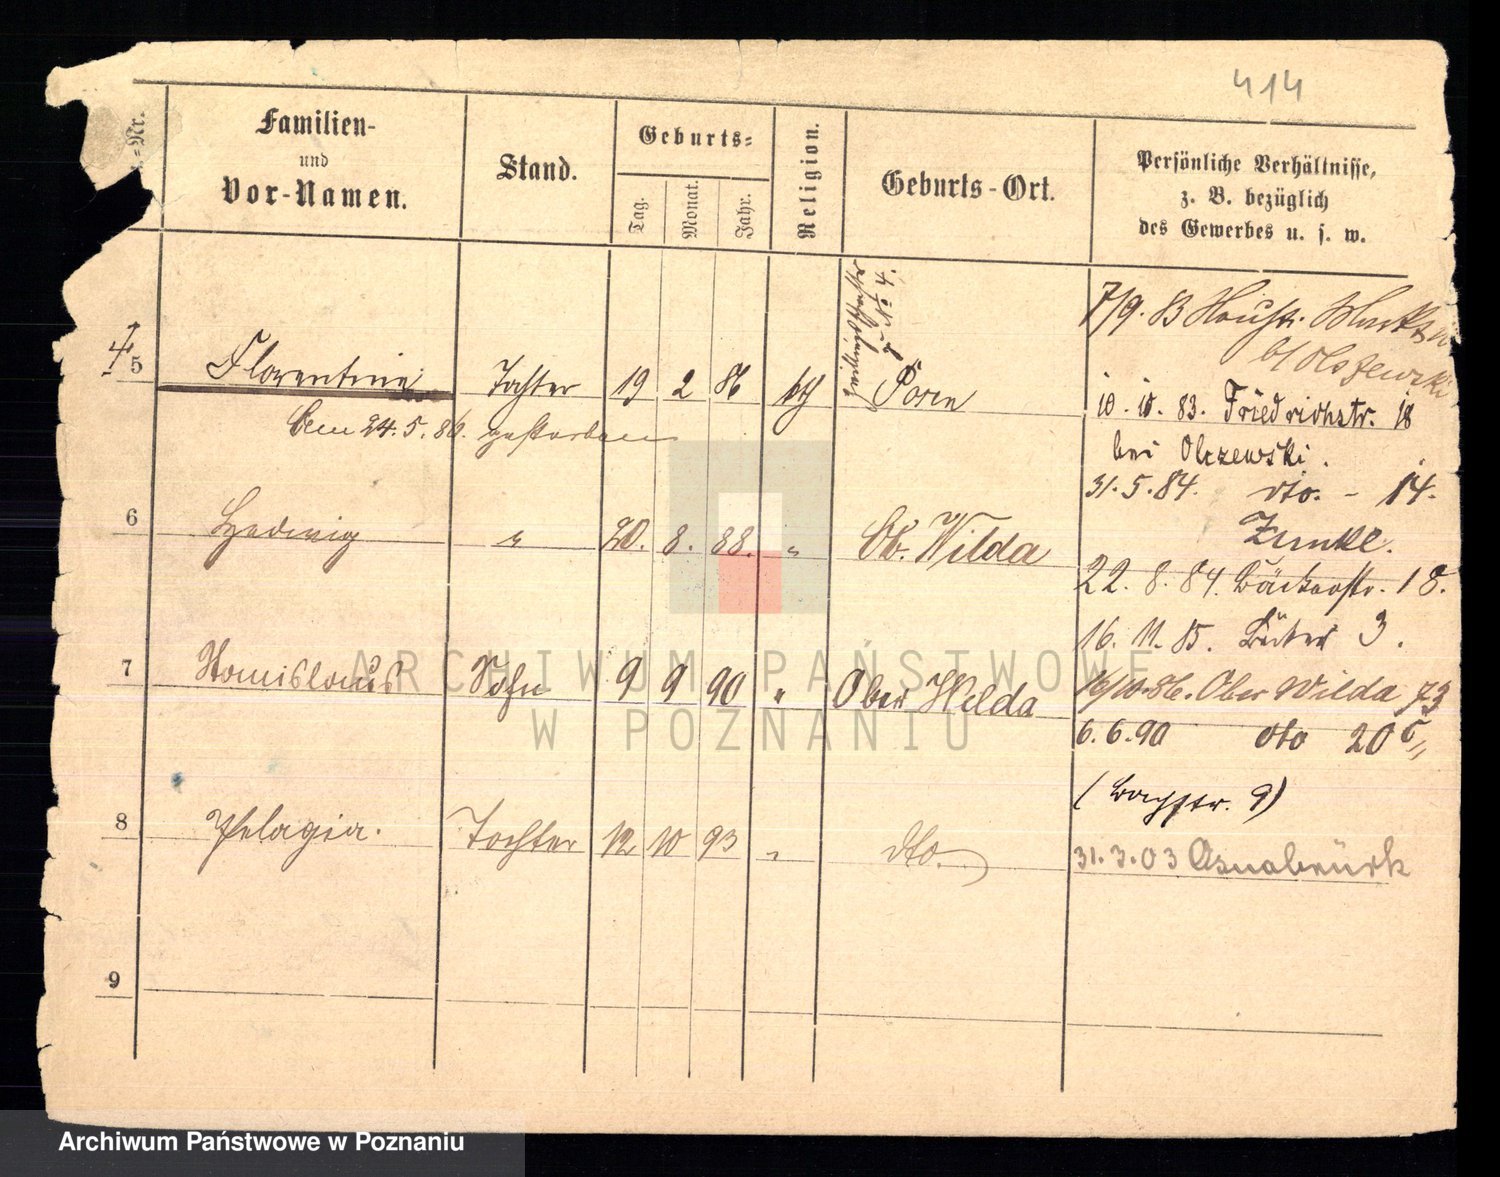 414
-Nr.
Familien-
und
Vor-Namen.
Stand.
Geburts-
Tag.
Monat.
Jahr.
Religion.
Geburts-Ort.
Persönliche Verhältnisse,
z. B. bezüglich
des Gewerbes u. s. w.
5 Florentine Tochter 19 2 86 kth Posen
zu No 4.
den 24.5.86. gestorben
6 Hedwig " 20. 8. 88. " Ob. Wilda
7 Stanislaus Sohn 9 9 90 " Ober Wilda
8 Pelagia. Tochter 12 10 93 " dto.
9
7/9. 83
b/Olszewski
10.10.83. Friedrichstr. 18
bei Olszewski.
31.5.84. dto. - 14.
Zunkl.
22. 8. 84. Bäckerstr. 18.
16. 11. 85. 3.
16/10.86. Ober Wilda 73
6.6.90 dto 20
(Bachstr. 9)
31.3.03 Osnabrück
ARCHIWUM PAŃSTWOWE
W POZNANIU
Archiwum Państwowe w Poznaniu